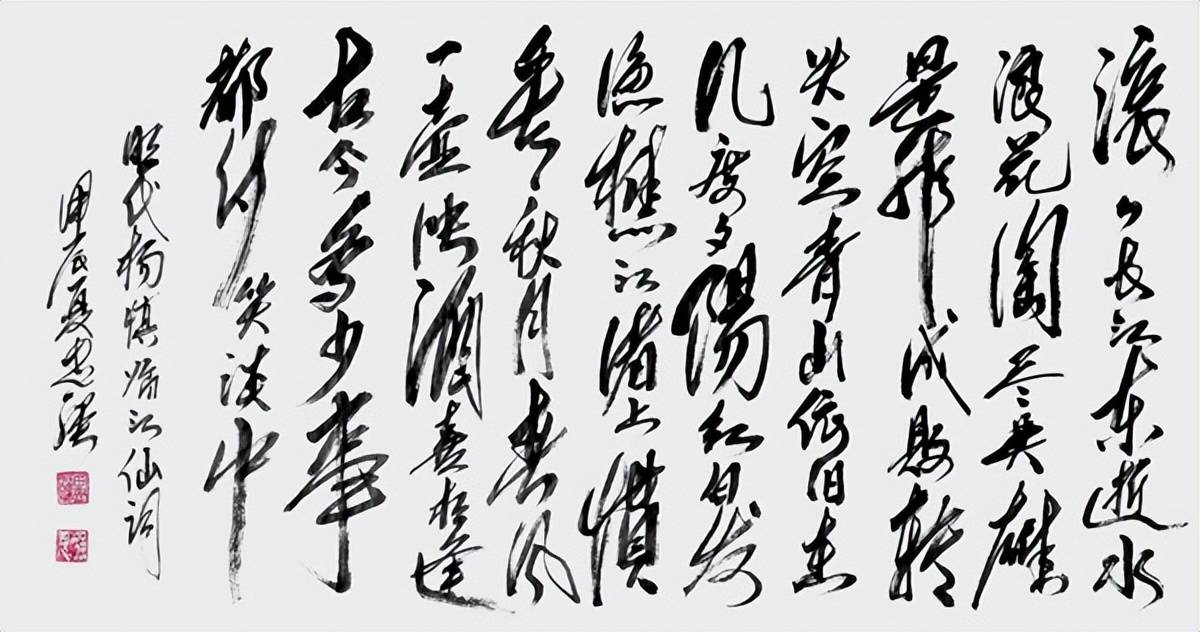 滚々长江东逝水
浪花淘尽英雄
是非成败转
头空青山依旧在
几度夕阳红白发
渔樵江渚上惯
看秋月春风
一壶浊酒喜相逢
古今多少事
都付笑谈中
明代杨慎临江仙词
甲辰夏忠